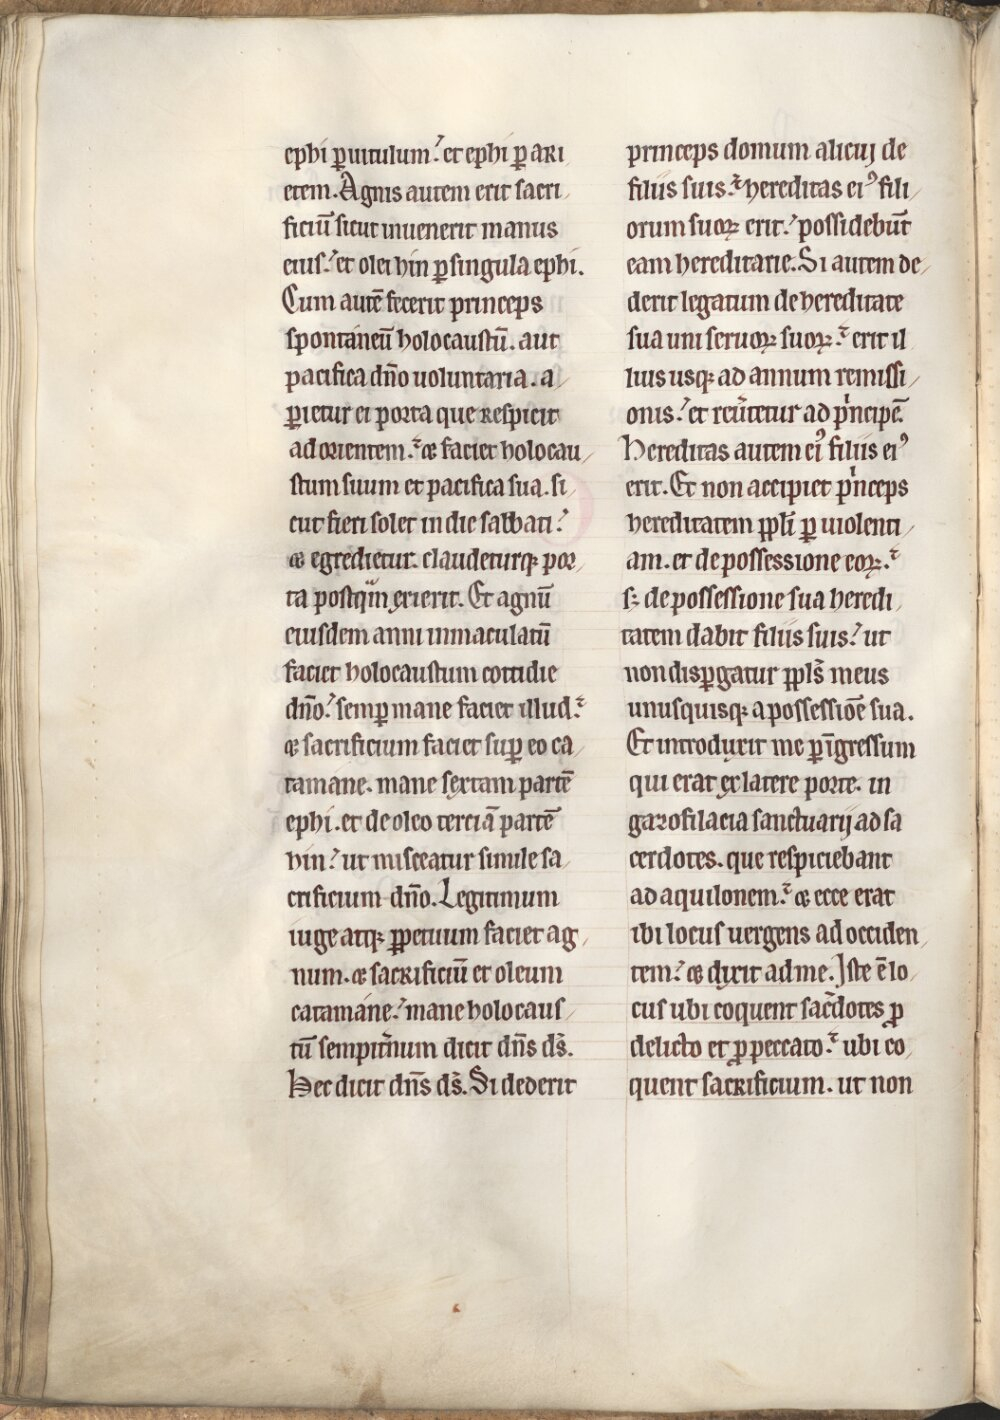 ephi ꝑ uitulum. et ephi ꝑ ari
etem. Agnis autem erit sacri
ficiū sicut inuenerit manus
eius. et olei hin ꝑ singula ephi.
Cum autē fecerit princeps
spontaneū holocaustū. aut
pacifica dn̄o uoluntaria. a
ꝑietur ei porta que respicit
ad orientem. ⁊ faciet holocau
stum suum et pacifica sua. si
cut fieri solet in die sabbati.
⁊ egredietur. claudeturqꝫ por
ta postqͣm exierit. Et agnū
eiusdem anni inmaculatū
faciet holocaustum cottidie
dn̄o. semꝑ mane faciet illud.
⁊ sacrificium faciet suꝑ eo ca
tamane. mane sextam partē
ephi. et de oleo terciā partē
hin. ut misceatur simile sa
crificium dn̄o. Legitimum
iuge atqꝫ ꝑpetuum faciet ag
num. ⁊ sacrificiū et oleum
catamane. mane holocaus
tū sempit̄num dicit dn̄s ds̄.
Hec dicit dn̄s ds̄. Si dederit
princeps domum alicuj de
filiis suis. hereditas eiꝰ fili
orum suoꝝ erit. possidebūt
eam hereditarie. Si autem de
derit legatum de hereditate
sua uni seruoꝝ suoꝝ. erit il
lius usqꝫ ad annum remissi
onis. et reūtetur ad pͥncipē.
Hereditas autem eiꝰ filiis eiꝰ
erit. Et non accipiet pͥnceps
hereditatem ppl̄i ꝑ uiolenti
am. et de possessione eoꝝ.
sꝫ de possessione sua heredi
tatem dabit filiis suis. ut
non disꝑgatur ppls̄ meus
unusquisqꝫ a possessiōe sua.
Et introduxit me ꝑ īgressum
qui erat ex latere porte. in
gazofilacia sanctuarij ad sa
cerdotes. que respiciebant
ad aquilonem. ⁊ ecce erat
ibi locus uergens ad occiden
tem. ⁊ dixit ad me. Iste ē lo
cus ubi coquent sac̄dotes ꝓ
delicto et ꝓ peccato. ubi co
quent sacrificium. ut non